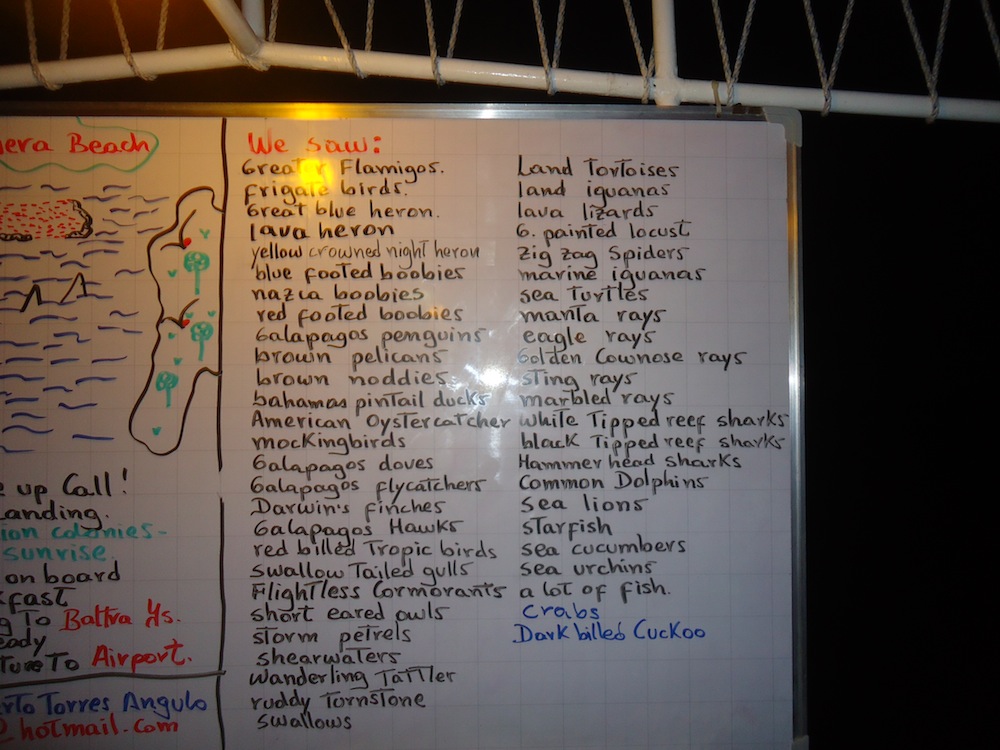 era Beach
up Call!
Landing.
ion colonies-
sunrise.
on board
kfast
g To Baltra Ys.
eady
ture To Airport.
rto Torres Angulo
@hotmail.com
We saw:
Greater Flamigos.
frigate birds.
Great blue heron.
lava heron
yellow crowned night heron
blue footed boobies
nazca boobies
red footed boobies
Galapagos penguins
brown pelicans
brown noddies
bahamas pintail ducks
American Oystercatcher
mockingbirds
Galapagos doves
Galapagos flycatchers
Darwin's finches
Galapagos Hawks
red billed Tropic birds
swallow Tailed gulls
Flightless Cormorants
short eared owls
storm petrels
shearwaters
wanderling Tattler
ruddy Tornstone
swallows
Land Tortoises
land iguanas
lava lizards
G. painted locust
zig zag Spiders
marine iguanas
sea Turtles
manta rays
eagle rays
Golden Cownose rays
sting rays
marbled rays
white Tipped reef sharks
black Tipped reef sharks
Hammerhead sharks
Common Dolphins
sea lions
starfish
sea cucumbers
sea urchins
a lot of fish.
Crabs
Dark billed Cuckoo